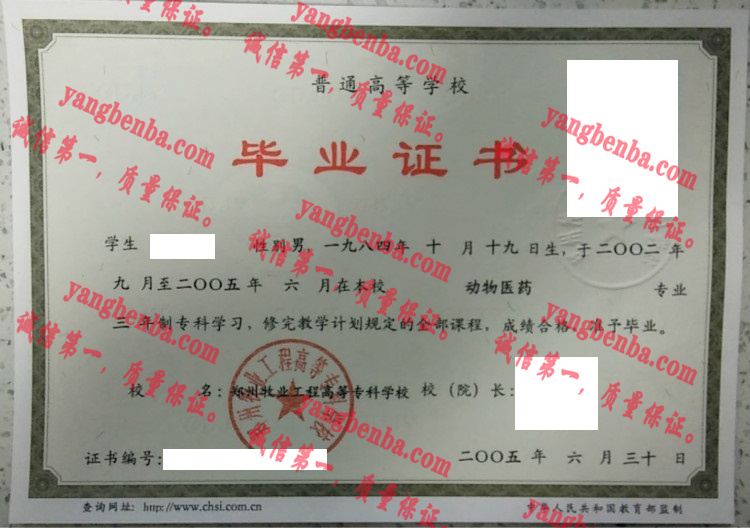 普通高等学校
毕业证书
学生 性别男，一九八四年 十 月十九日生，于二〇〇二年
九 月至二〇〇五年 六 月在本校 动物医药 专业
三 年制专科学习，修完教学计划规定的全部课程，成绩合格，准予毕业。
校 名：郑州牧业工程高等专科学校 校（院）长：
郑州牧业工程高等专科学校
证书编号： 二〇〇五 年 六 月三十日
查询网址：http://www.chsi.com.cn 中华人民共和国教育部监制
yangbenba.com
诚信第一，质量保证。
yangbenba.com
诚信第一，质量保证。
yangbenba.com
诚信第一，质量保证。
yangbenba.com
诚信第一，质量保证。
yangbenba.com
诚信第一，质量保证。
yangbenba.com
诚信第一，质量保证。
yangbenba.com
诚信第一，质量保证。
yangbenba.com
诚信第一，质量保证。